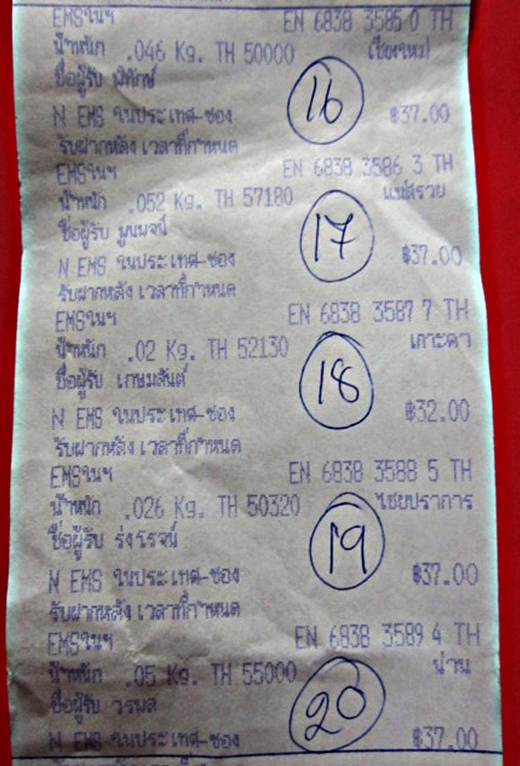 EMSในฯ EN 6838 3585 0 TH
น้ำหนัก .046 Kg. TH 50000 เชียงใหม่
ชื่อผู้รับ พิทักษ์
16
N EMS ในประเทศ-ซอง ฿37.00
รับฝากหลัง เวลาที่กำหนด
EMSในฯ EN 6838 3586 3 TH
น้ำหนัก .052 Kg. TH 57180 แม่สรวย
ชื่อผู้รับ พูนพจน์
17
N EMS ในประเทศ-ซอง ฿37.00
รับฝากหลัง เวลาที่กำหนด
EMSในฯ EN 6838 3587 7 TH
น้ำหนัก .02 Kg. TH 52130 เกาะคา
ชื่อผู้รับ เกษมสันต์
18
N EMS ในประเทศ-ซอง ฿32.00
รับฝากหลัง เวลาที่กำหนด
EMSในฯ EN 6838 3588 5 TH
น้ำหนัก .026 Kg. TH 50320 ไชยปราการ
ชื่อผู้รับ รุ่งโรจน์
19
N EMS ในประเทศ-ซอง ฿37.00
รับฝากหลัง เวลาที่กำหนด
EMSในฯ EN 6838 3589 4 TH
น้ำหนัก .05 Kg. TH 55000 น่าน
ชื่อผู้รับ วรพล
20
N EMS ในประเทศ-ซอง ฿37.00